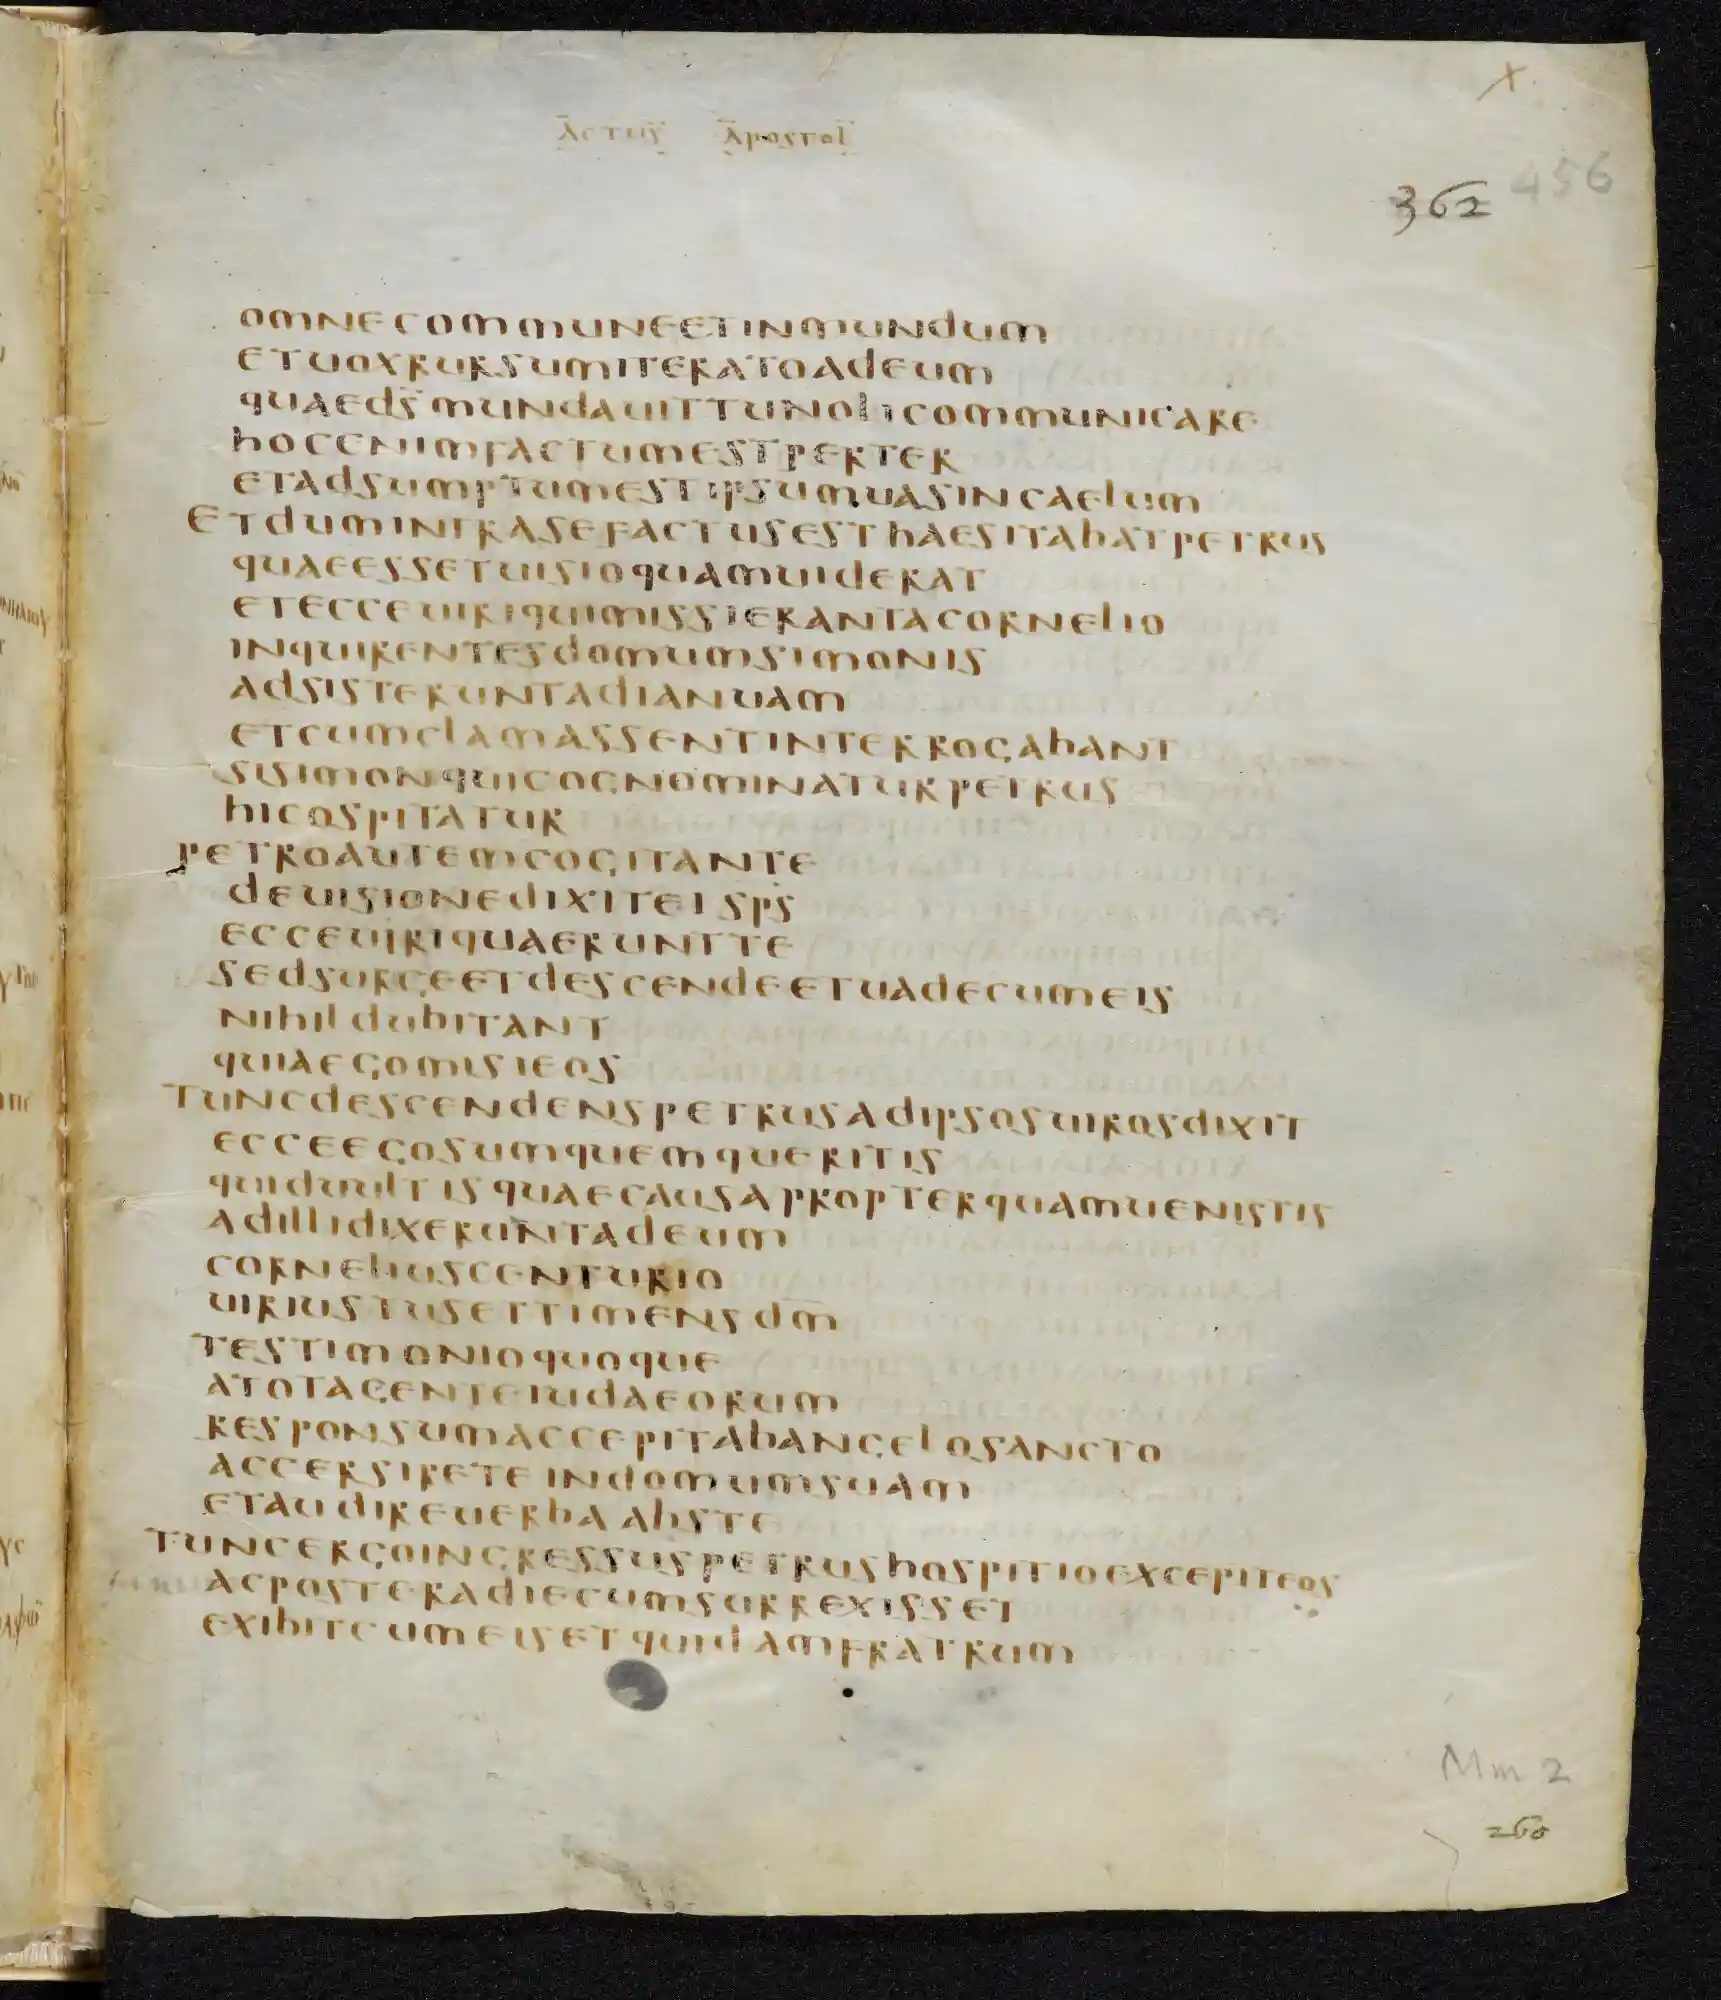 Actus Apostol
362 456
omnecommuneetinmundum
etuoxrursumiteratoadeum
quaeds̄mundauittunolicommunicare
hocenimfactumestperter
etadsumptumestipsumuasincaelum
Etdumintrasefactusesthaesitabatpetrus
quaeessetuisioquamuiderat
etecceuiriquimissierantacornelio
inquirentesdomumsimonis
adsisteruntadianuam
etcumclamassentinterrogabant
sisimonquicognominaturpetrus
hicospitatur
petroautemcogitante
deuisionedixiteisps̄
ecceuiriquaeruntte
sedsurgeetdescendeetuadecumeis
nihildubitant
quiaegomisieos
Tuncdescendenspetrusadipsosuirosdixit
ecceegosumquemqueritis
quiduultisquaecausapropterquamuenistis
adillidixeruntadeum
corneliuscenturio
uiriustusettimensdm̄
testimonioquoque
atotagenteiudaeorum
responsumaccepitabangelosancto
accersirete indomumsuam
etaudireuerba abste
Tuncergoingressuspetrushospitioexcepiteos
acposteradiecumsurrexisset
exibitcumeisetquidamfratrum
Mm 2
260